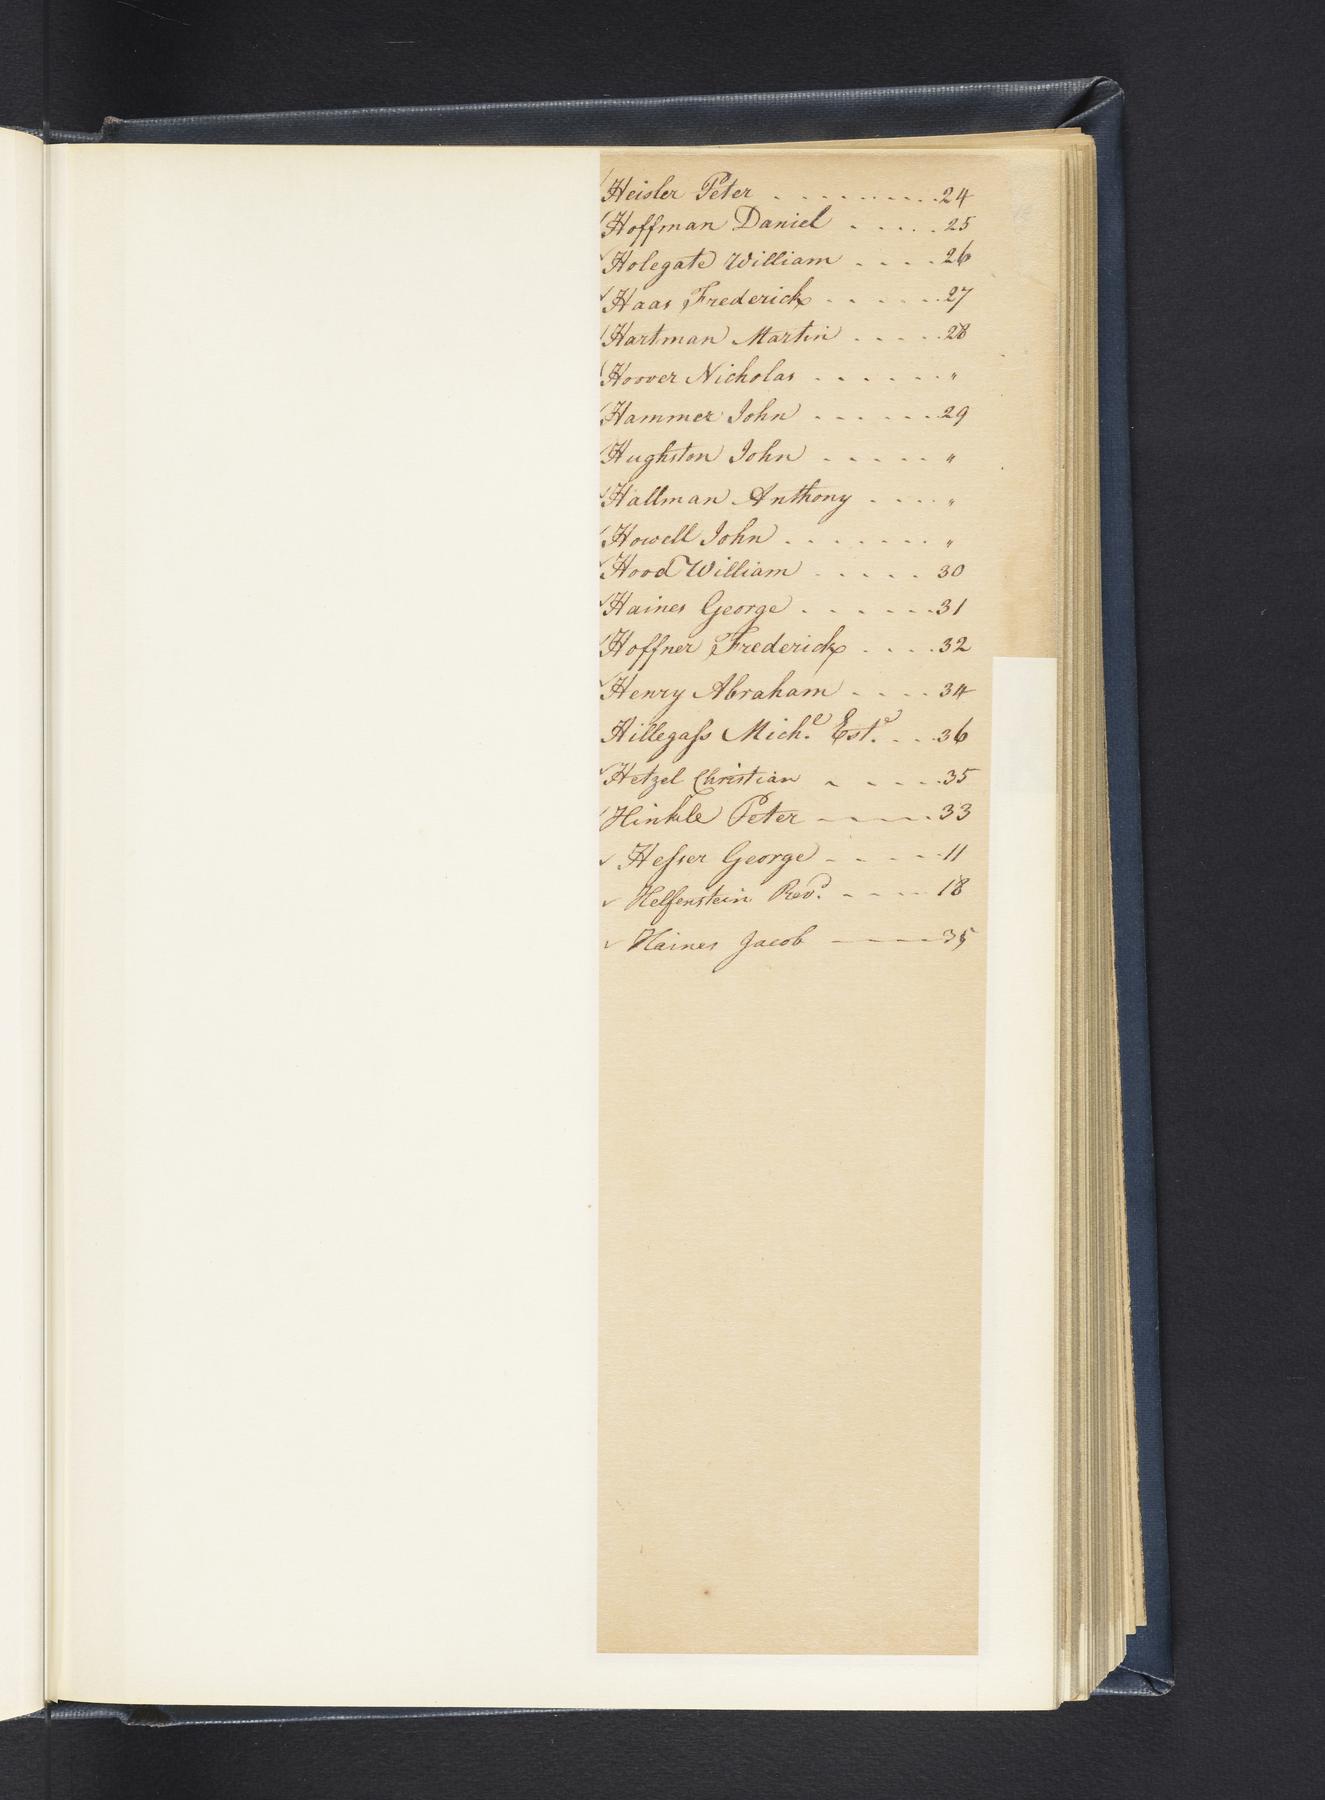 ✓ Heisler Peter . . . . . . . . . 24
✓ Hoffman Daniel . . . . . 25
✓ Holegate William . . . . 26
✓ Haas Frederick . . . . . . 27
✓ Hartman Martin . . . . . 28
✓ Hoover Nicholas . . . . . . "
✓ Hammer John . . . . . . 29
✓ Hughston John . . . . . "
✓ Hallman Anthony . . . . "
✓ Howell John . . . . . . . "
✓ Hood William . . . . . 30
✓ Haines George . . . . . . 31
✓ Hoffner Frederick . . . . 32
✓ Henry Abraham . . . . 34
Hillegass Mich.l Est.e . . . 36
✓ Hetzel Christian . . . . 35
✓ Hinkle Peter . . . . 33
✓ Hesser George . . . . 11
✓ Helfenstein Rev.d . . . . 18
✓ Haines Jacob . . . . 35